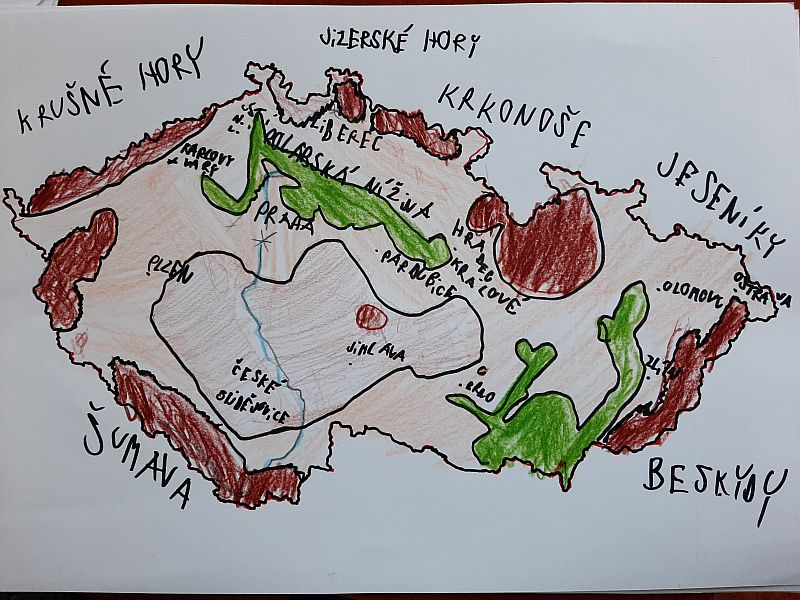 JIZERSKÉ HORY
KRUŠNÉ HORY
KRKONOŠE
JESENÍKY
ÚSTÍ
N.
L.
LIBEREC
KARLOVY
VARY
POLABSKÁ NÍŽINA
PRAHA
HRA
DEC
KRÁLOVÉ
PARDUBICE
PLZEŇ
OSTRAVA
OLOMOUC
JIHLAVA
ZLÍN
ČESKÉ
BUDĚJOVICE
BRNO
ŠUMAVA
BESKYDY